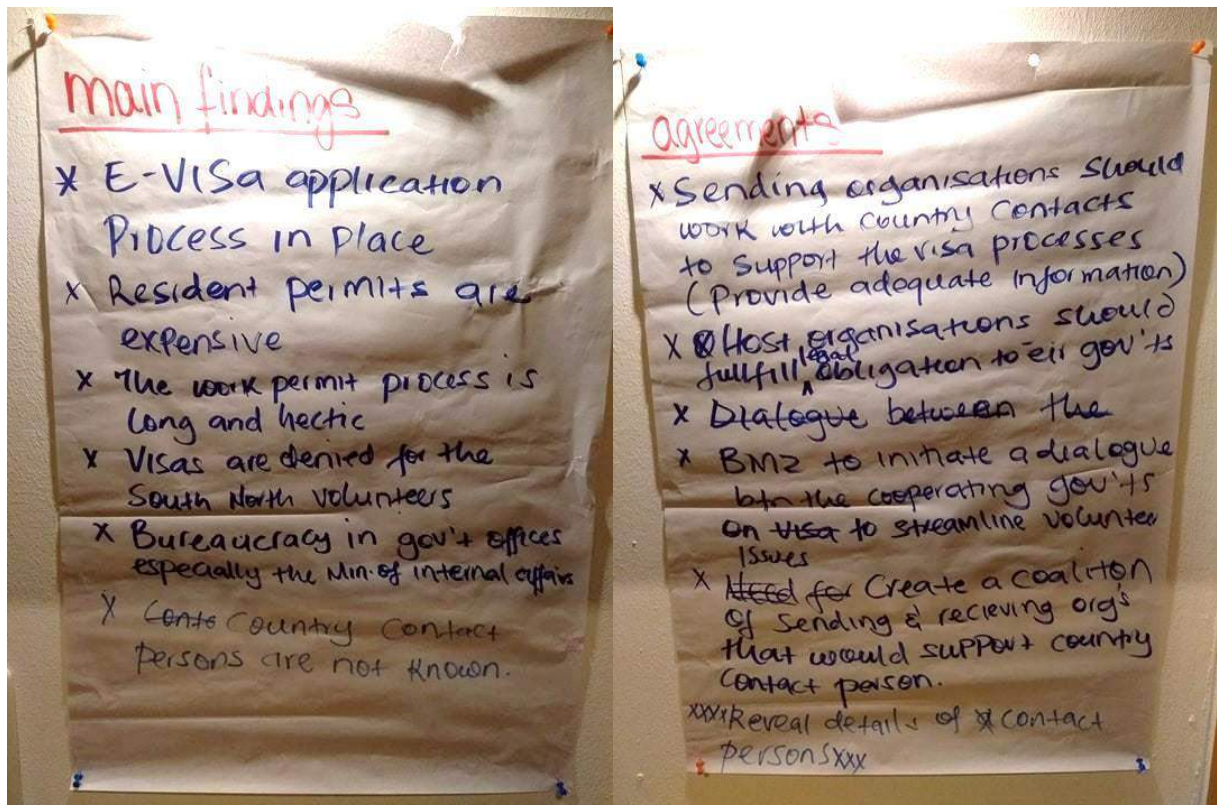 main findings
* E-VISa application
Process in place
x Resident permits are
expensive
x The work permit process is
long and hectic
x Visas are denied for the
South North volunteers
x Bureaucracy in gov't offices
especially the Min. of internal affairs
x Conts Country contact
persons are not known.
agreements
x Sending organisations should
work with country contacts
to support the visa processes
(provide adequate information)
x Host organisations should
legal
fullfill obligation to eir gov'ts
x Dialogue between the
x BMZ to initiate a dialogue
btn the cooperating gov'ts
on visa to streamline volunteer
issues
x Need for Create a coalition
of sending & recieving org's
that would support country
contact person.
xxxx Reveal details of contact
persons xxx